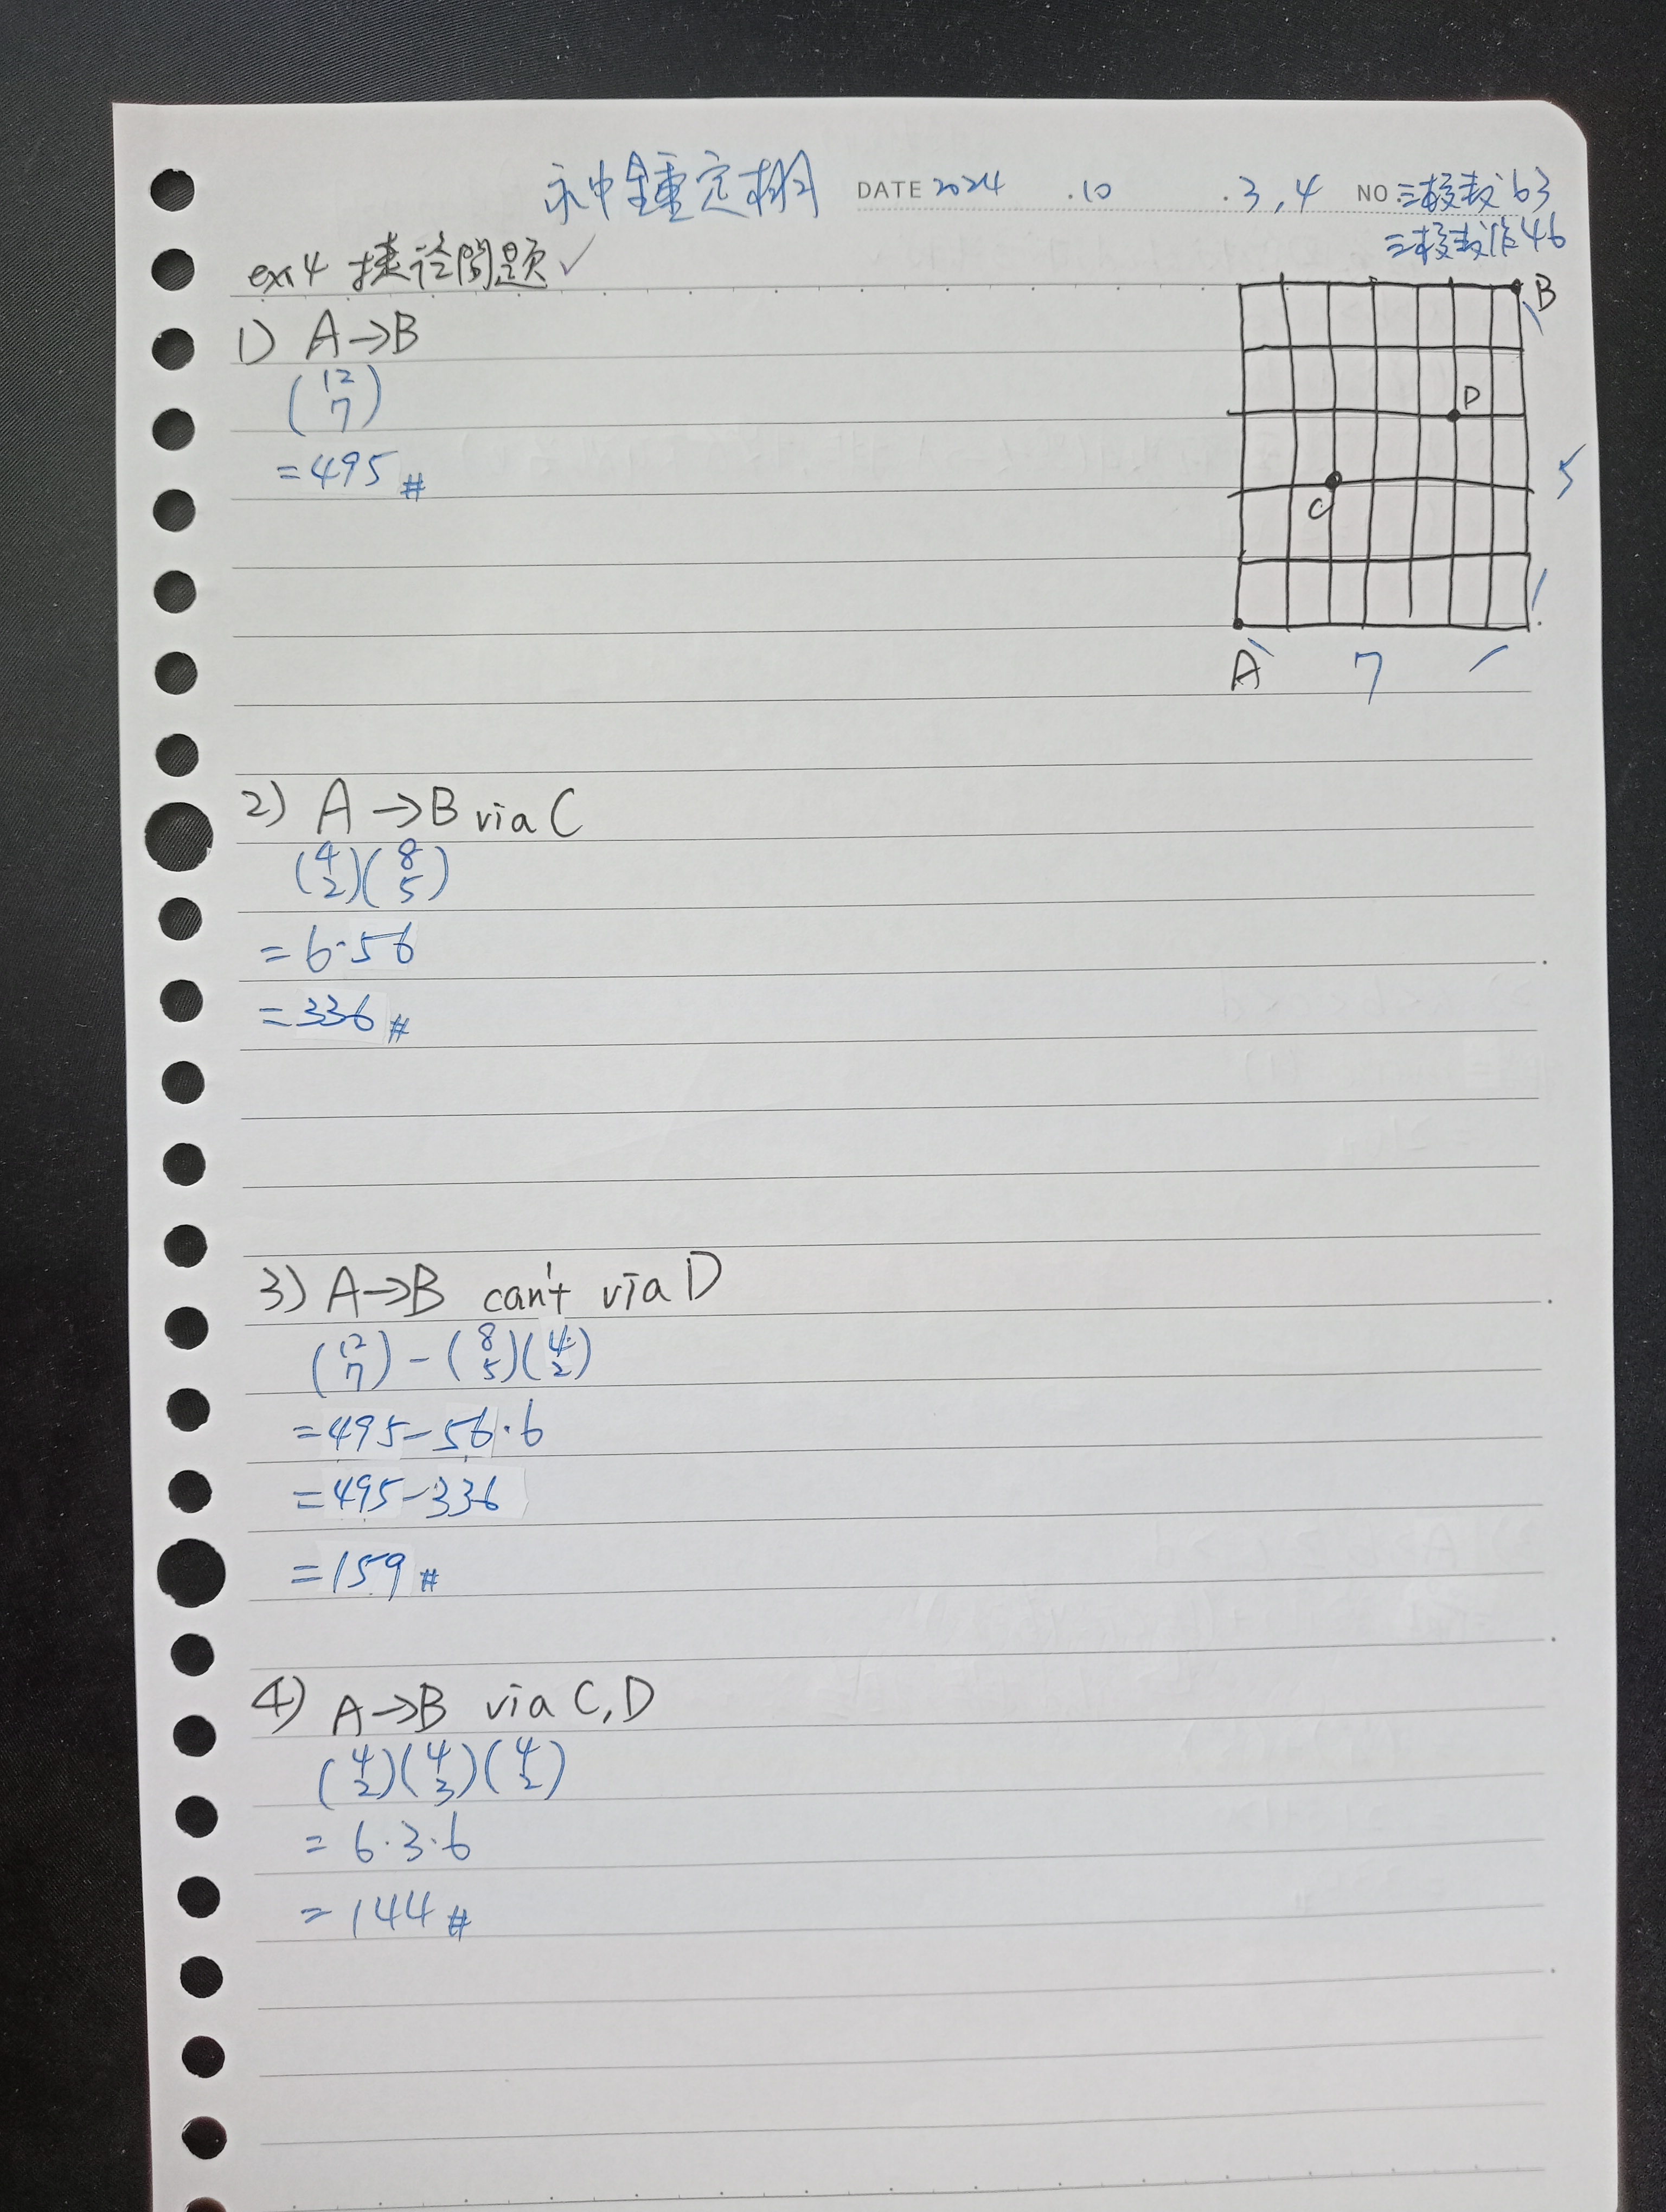 永中鍾定樹 DATE 2024 .10 .3,4 NO.三校教63
三校教作46
ex4 捷徑問題✓
1) A→B
(12 7)
=495#
B
D
C
5
A 7
2) A→B via C
(4 2)(8 5)
=6·56
=336#
3) A→B can't via D
(12 7)-(8 5)(4 2)
=495-56·6
=495-336
=159#
4) A→B via C,D
(4 2)(4 3)(4 2)
=6·3·6
=144#